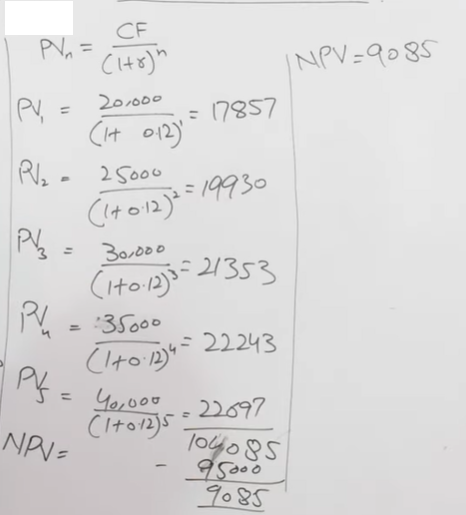 PVₙ = CF / (1+r)ⁿ
NPV = 9085
PV₁ = 20,000 / (1+ 0.12)¹ = 17857
PV₂ = 25000 / (1+0.12)² = 19930
PV₃ = 30,000 / (1+0.12)³ = 21353
PV₄ = 35000 / (1+0.12)⁴ = 22243
PV₅ = 40,000 / (1+0.12)5 = 22697
104085
NPV=
- 95000
9085